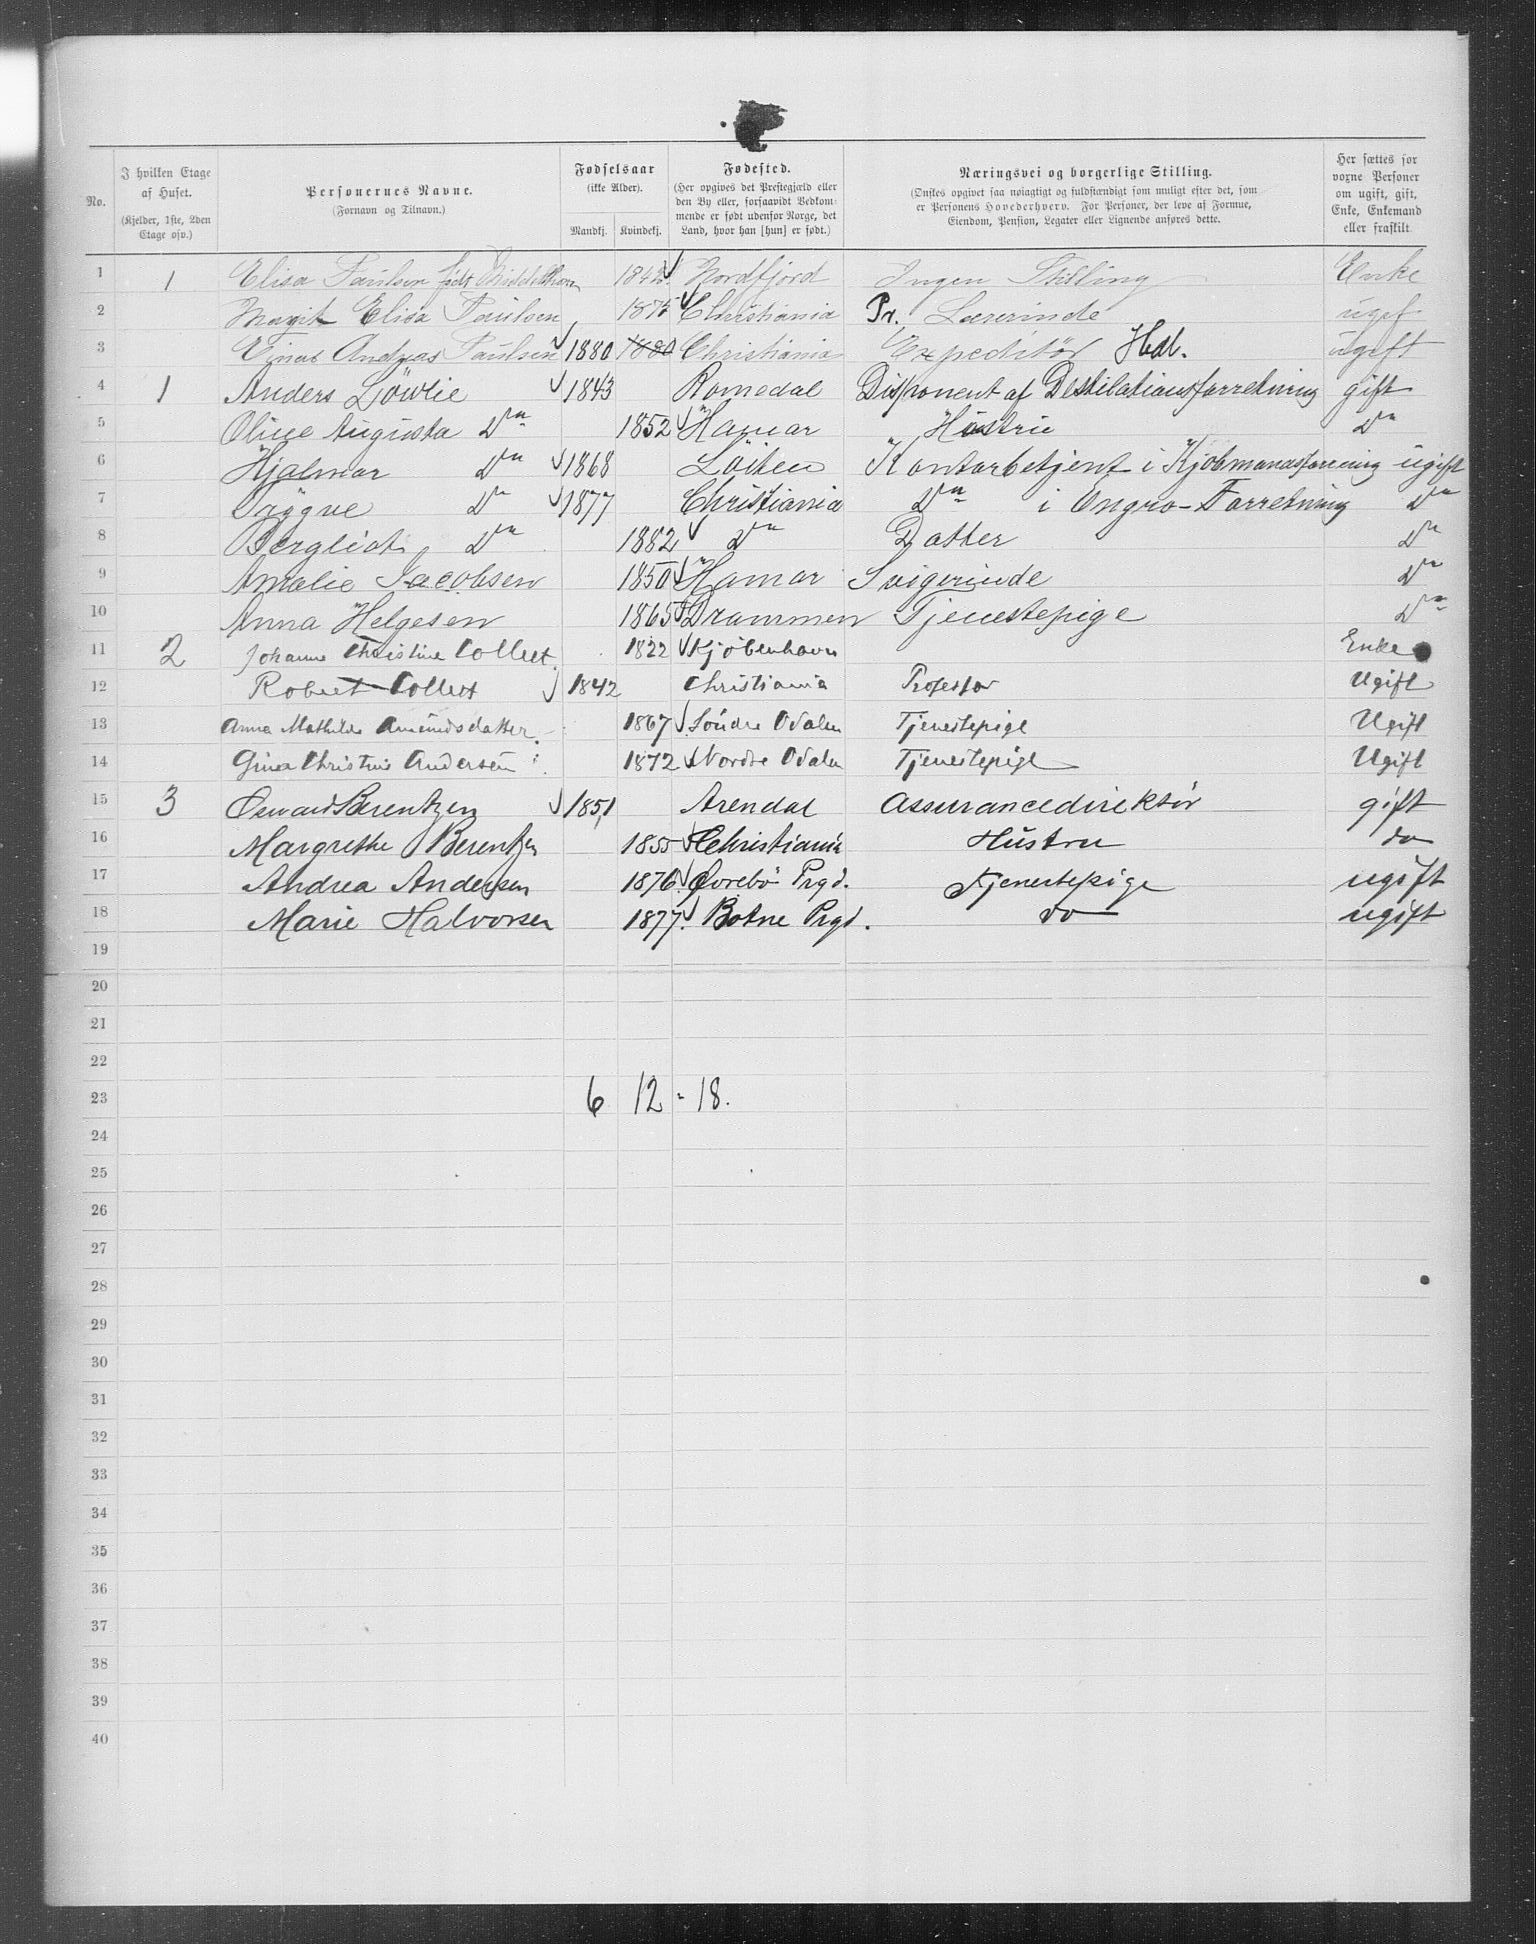 No.
I hvilken Etage af Huset.
(Kjelder, 1ste, 2den Etage osv.)
Personernes Navne.
(Fornavn og Tilnavn.)
Fødselsaar
(ikke Alder).
Mandkj. Kvindekj.
Fødested.
(Her opgives det Prestegjæld eller den By eller, forsaavidt Vedkommende er født udenfor Norge, det Land, hvor han [hun] er født.)
Næringsvei og borgerlige Stilling.
(Ønskes opgivet saa nøiagtigt og fuldstændigt som muligt efter det, som er Personens Hovederhverv. For Personer, der leve af Formue, Eiendom, Pension, Legater eller Lignende anføres dette.
Her sættes for voxne Personer om ugift, gift, Enke, Enkemand eller fraskilt.
1 1 Elisa Paulsen født Middelthon 1842 Nordfjord Ingen Stilling Enke
2 Margit Elisa Paulsen 1875 Christiania Pr. Lærerinde ugift
3 Einar Andreas Paulsen 1880 1880 Christiania Expeditør Hdl. ugift
4 1 Anders Löwlie 1843 Romedal Disponent af Destilationsforretning gift
5 Augusta Dº 1852 Hamar Hustru Dº
6 Hjalmar Dº 1868 Löiten Kontorbetjent i Kjøbmandsforening ugift
7 Dº 1877 Christiania Dº i Engro-Forretning Dº
8 Bergliot Dº 1882 Dº Datter Dº
9 Amalie Jacobsen 1850 Hamar Svigerinde Dº
10 Anna Helgesen 1865 Drammen Tjenestepige Dº
11 2 Johanne Christine Collett 1822 Kjøbenhavn Enke
12 Robert Collett 1842 Christiania Professor Ugift
13 Anna Mathilde Amundsdatter 1867 Söndre Odalen Tjenestepige Ugift
14 Gina Christine Andersen 1872 Nordre Odalen Tjenestepige Ugift
15 3 Osward Berentzen 1851 Arendal Assurancedirektör gift
16 Margrethe Berentzen 1855 Christiania Hustru do
17 Andrea Andersen 1876 Øvrebö Prgd. Tjenestepige ugift
18 Marie Halvorsen 1877 Botne Prgd. do ugift
19
20
21
22
23 6 12 = 18.
24
25
26
27
28
29
30
31
32
33
34
35
36
37
38
39
40